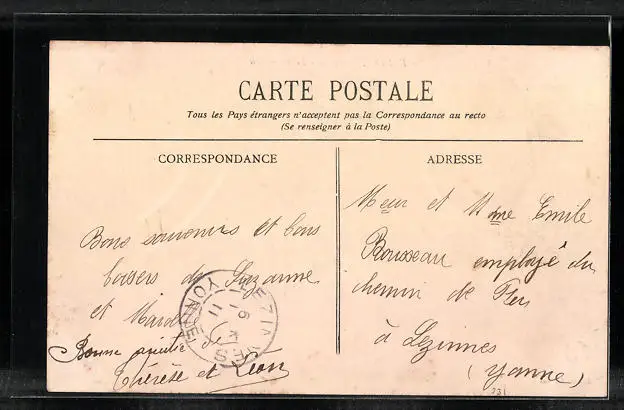 CARTE POSTALE
Tous les Pays étrangers n'acceptent pas la Correspondance au recto
(Se renseigner à la Poste)
CORRESPONDANCE
Bons souvenirs et bons
baisers de Suzanne
et
Bonne
Thérèse et Léon
ADRESSE
Meur et Mme Emile
Rousseau employé du
chemin de Fer
à Lézinnes
(Yonne)
LEZINNES
YONNE